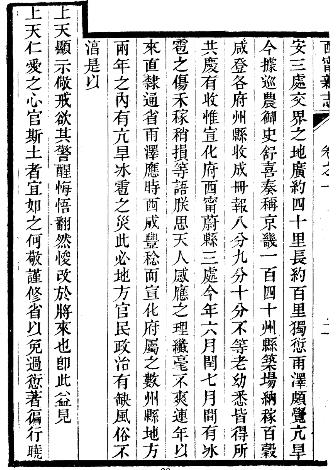 西寧新志 卷之一
安三處交界之地廣約四十里長約百里獨愆雨澤頗覺亢旱
今據巡農御史舒喜奏稱京畿一百四十州縣築場納稼百穀
咸登各府州縣收成冊報八分九分十分不等老幼悉皆得所
共慶有收惟宣化府西甯蔚縣三處今年六月閏七月間有冰
雹之傷禾稼稍損等語朕思天人感應之理纖毫不爽連年以
來直隸通省雨澤應時西成豐稔而宣化府屬之數州縣地方
兩年之內有亢旱冰雹之災此必地方官民政治有缺風俗不
淳是以
上天顯示儆戒欲其警醒悔悟翻然悛改於將來也即此益見
上天仁愛之心官斯土者宜如之何敬謹修省以免過愆著徧行曉